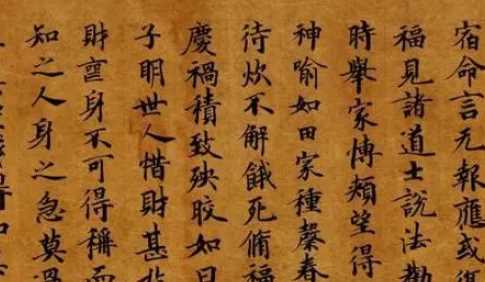 宿命言无報應或
福見諸道士說法勸
時舉家愽頰望得
神喻如田家種罄春
待炊不解餓死脩福
慶禍積致殃皎如日
子明世人惜財甚
財亶身不可得稱而
知之人身之急莫過